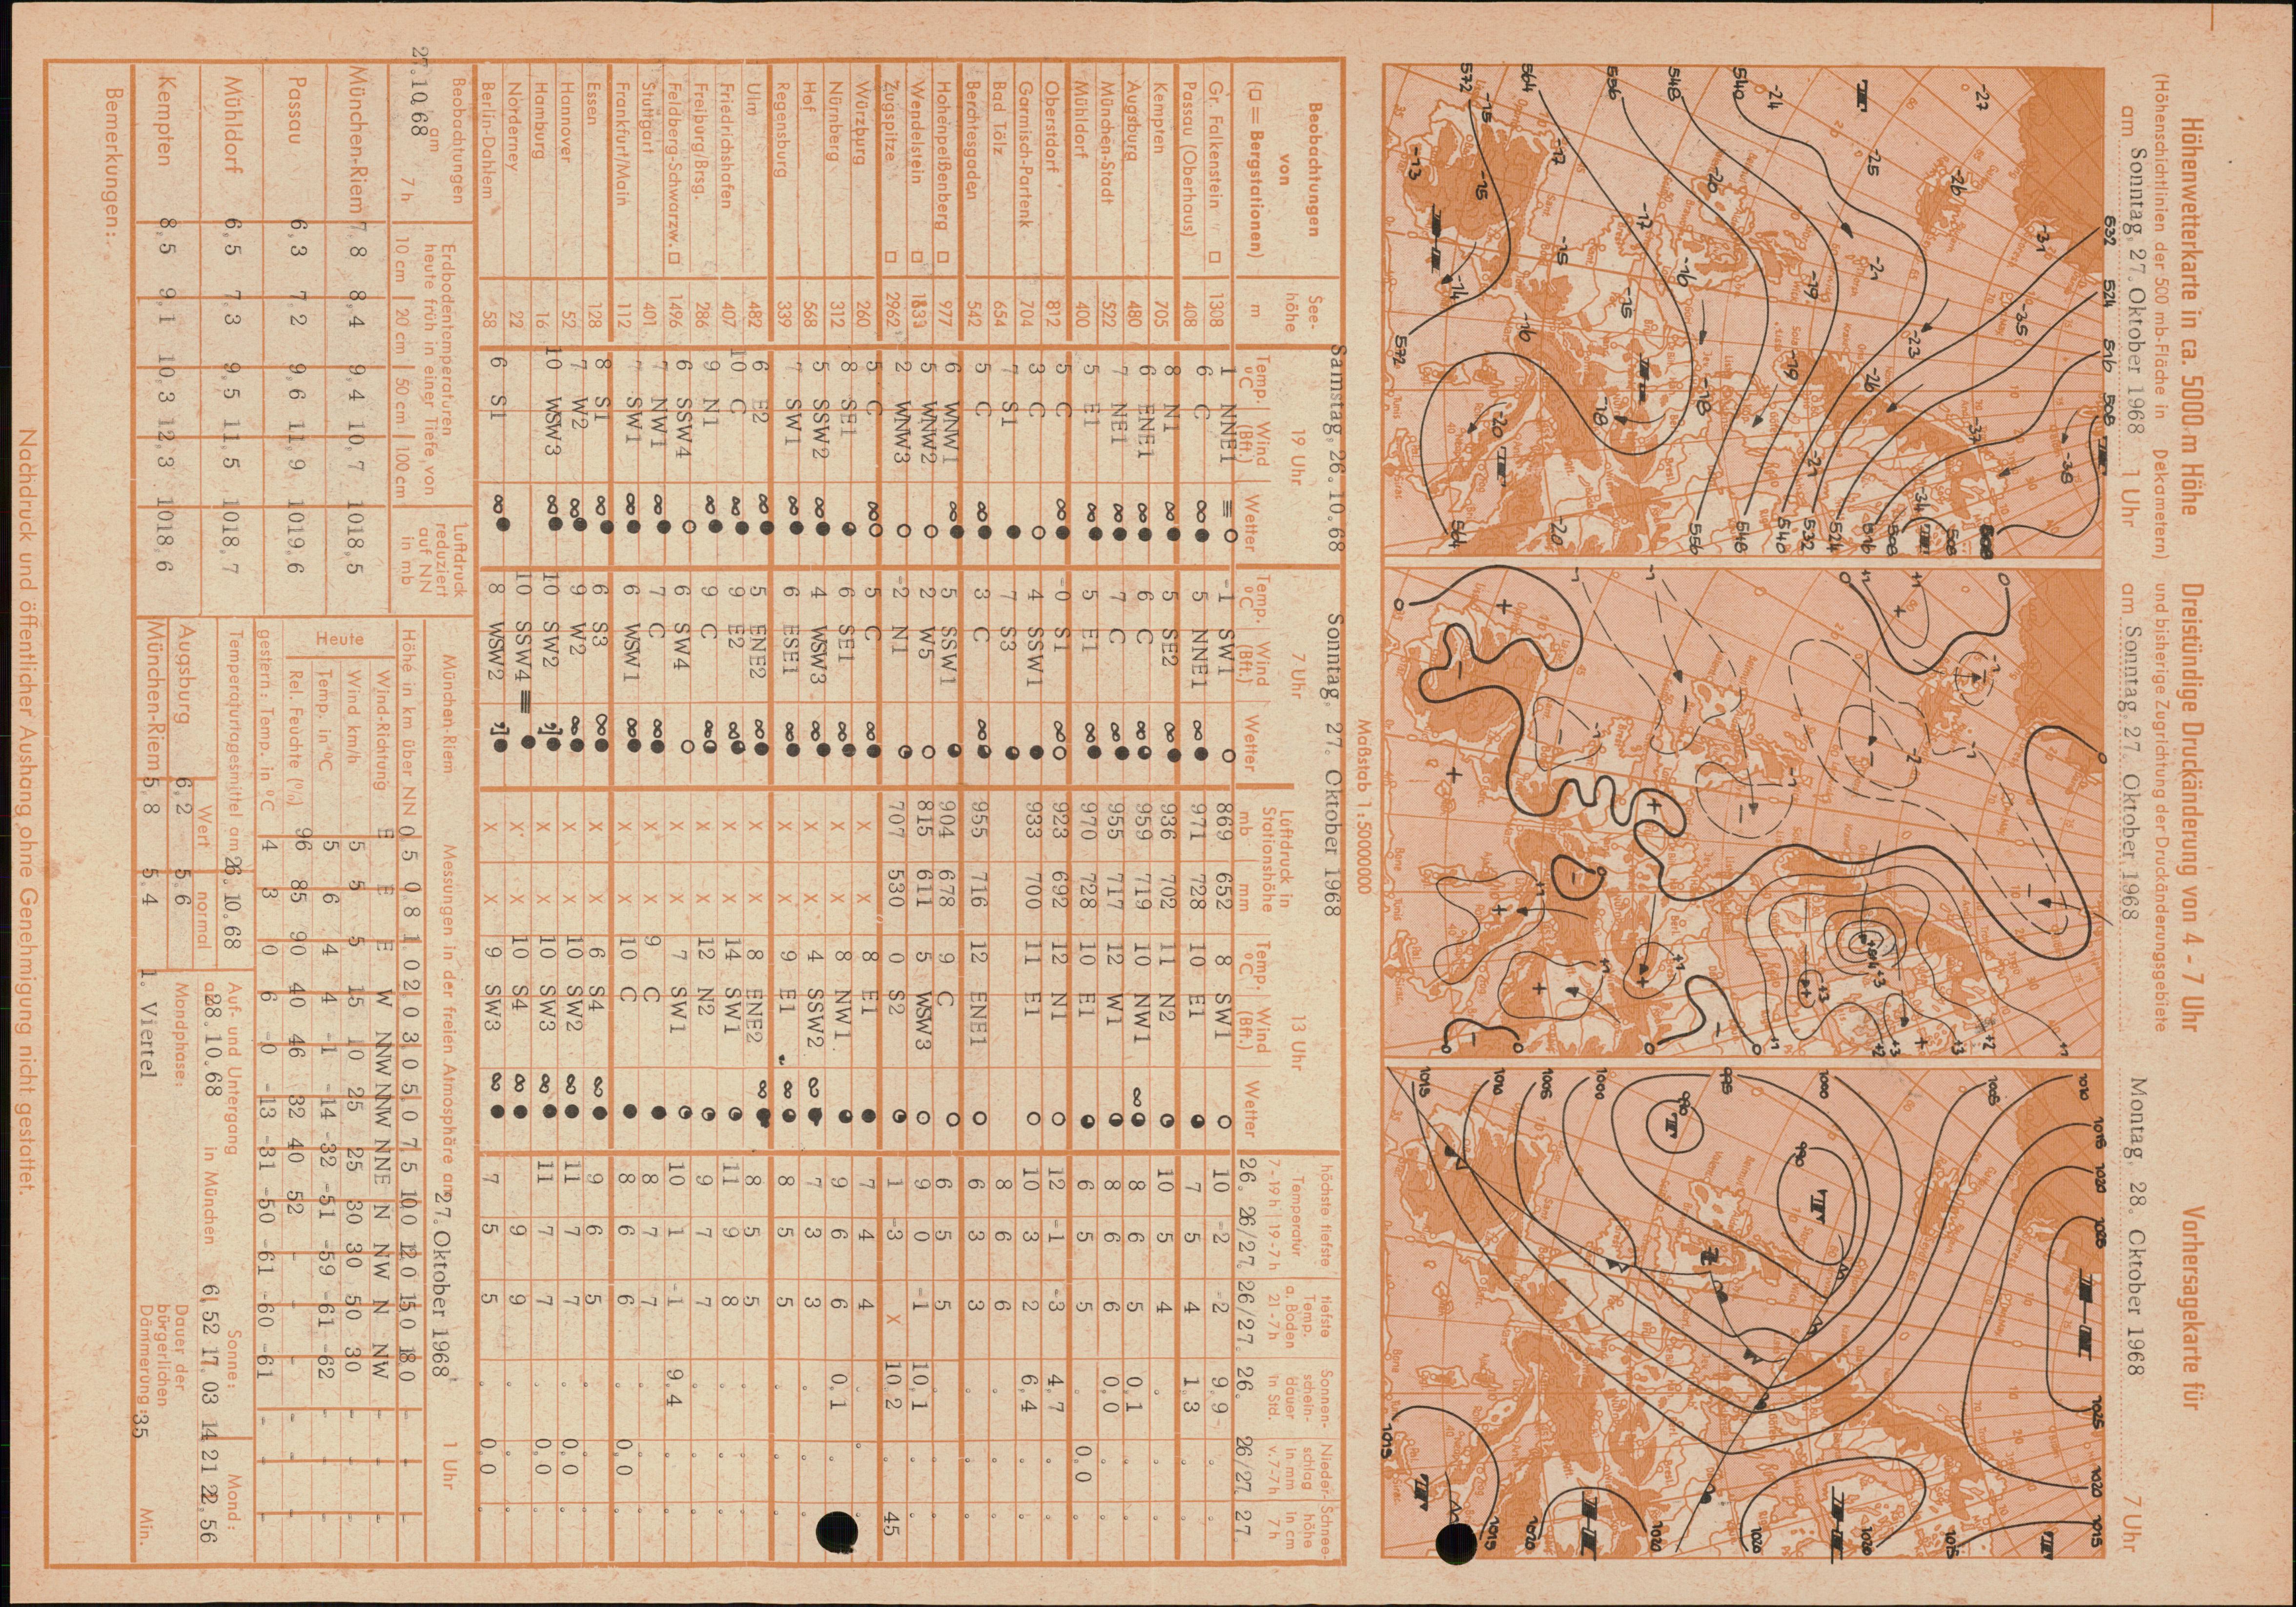 Höhenwetterkarte in ca. 5000 m Höhe
(Höhenschichtlinien der 500 mb-Fläche in Dekametern)
am Sonntag, 27. Oktober 1968 1 Uhr
Dreistündige Druckänderung von 4 - 7 Uhr
und bisherige Zugrichtung der Druckänderungsgebiete
am Sonntag, 27. Oktober 1968
Vorhersagekarte für
Montag, 28. Oktober 1968 7 Uhr
532 524 516 508
-27 -26 -31 -35 -38
-24 -25 -21 -23 -26 -37 -34
540 548 556 564 572
-20 -19 -19 -21
-17 -17 -16 -18
-15 -15 -15 -15 -16 -18 -20 -20
-13 -14
508 508 516 524 532 540 548 556 564 572
0 +1 +1 -1 -1 -2 -1 -1 -1 -1 +1 +1 +1 +1 +2 +3 +3 +3 +2 0
1010 1015 1020 1025 1025 1020 1015
1005 1000 995 990 990 1000 1005 1010 1015
1015 1020 1020 1020 1020 1015 1015
Maßstab 1:50000000
Samstag, 26.10.68 Sonntag, 27. Oktober 1968
Beobachtungen von (□ = Bergstationen)
Seehöhe m
19 Uhr Temp. °C Wind (Bft.) Wetter
7 Uhr Temp. °C Wind (Bft.) Wetter
Luftdruck in Stationshöhe mb mm
13 Uhr Temp. °C Wind (Bft.) Wetter
höchste tiefste Temperatur 7-19 h 19-7 h
tiefste Temp. a. Boden 21-7 h
Sonnenscheindauer in Std.
Niederschlag in mm v. 7-7 h
Schneehöhe in cm 7 h
26. 26/27. 26/27. 26. 26/27. 27.
Gr. Falkenstein □ 1308 1 NNE1 -1 SW1 869 652 8 SW1 10 -2 -2 9,9 . .
Passau (Oberhaus) 408 6 C 5 NNE1 971 728 10 E1 7 5 4 1,3 . .
Kempten 705 8 N1 5 SE2 936 702 11 N2 10 5 4 . . .
Augsburg 480 6 ENE1 6 C 959 719 10 NW1 8 6 5 0,1 . .
München-Stadt 522 7 NE1 7 C 955 717 12 W1 8 6 6 0,0 . .
Mühldorf 400 5 E1 5 E1 970 728 10 E1 6 5 5 . 0,0 .
Oberstdorf 812 5 C -0 S1 923 692 12 N1 12 -1 -3 4,7 . .
Garmisch-Partenk. 704 3 C 4 SSW1 933 700 11 E1 10 3 2 6,4 . .
Bad Tölz 654 7 S1 7 S3 8 6 6 . . .
Berchtesgaden 542 5 C 3 C 955 716 12 ENE1 6 3 3 . . .
Hohenpeißenberg □ 977 6 WNW1 5 SSW1 904 678 9 C 6 5 5 . . .
Wendelstein □ 1833 5 WNW2 2 W5 815 611 5 WSW3 9 0 -1 10,1 . .
Zugspitze □ 2962 2 WNW3 -2 N1 707 530 0 S2 1 -3 x 10,2 . 45
Würzburg 260 5 C 5 C x x 8 E1 7 4 4 . . .
Nürnberg 312 8 SE1 6 SE1 x x 8 NW1 9 6 6 0,1 .
Hof 568 5 SSW2 4 WSW3 x x 4 SSW2 7 3 3 . . .
Regensburg 339 7 SW1 6 ESE1 x x 9 E1 8 5 5 . . .
Ulm 482 6 E2 5 ENE2 x x 8 ENE2 8 5 5 . . .
Friedrichshafen 407 10 C 9 E2 x x 14 SW1 11 9 8 . . .
Freiburg/Brsg. 286 9 N1 9 C x x 12 N2 9 7 7 . . .
Feldberg-Schwarzw. □ 1496 6 SSW4 6 SW4 x x 7 SW1 10 1 -1 9,4 . .
Stuttgart 401 7 NW1 7 C x x 9 C 8 7 7 . . .
Frankfurt/Main 112 7 SW1 6 WSW1 x x 10 C 8 6 6 . 0,0 .
Essen 128 8 S1 6 S3 x x 6 S4 9 6 5 . . .
Hannover 52 7 W2 9 W2 x x 10 SW2 11 7 7 . 0,0 .
Hamburg 16 10 WSW3 10 SW2 x x 10 SW3 11 7 7 . 0,0 .
Norderney 22 10 SSW4 x x 10 S4 9 9 . . .
Berlin-Dahlem 58 6 S1 8 WSW2 x x 9 SW3 7 5 5 . 0,0 .
Beobachtungen am 27.10.68 7 h
Erdbodentemperaturen heute früh in einer Tiefe von
10 cm 20 cm 50 cm 100 cm
Luftdruck reduziert auf NN in mb
München-Riem 7,8 8,4 9,4 10,7 1018,5
Passau 6,3 7,2 9,6 11,9 1019,6
Mühldorf 6,5 7,3 9,5 11,5 1018,7
Kempten 8,5 9,1 10,3 12,3 1018,6
Bemerkungen:
München-Riem Messungen in der freien Atmosphäre am 27. Oktober 1968 1 Uhr
Höhe in km über NN 0,5 0,8 1,0 2,0 3,0 5,0 7,5 10,0 12,0 15,0 18,0 - - -
Heute
Wind-Richtung E E E W NNW NNW NNE N NW N NW - - -
Wind km/h 5 5 5 15 10 25 25 30 30 50 30 - - -
Temp. in °C 5 6 4 4 -1 -14 -32 -51 -59 -61 -62 - - -
Rel. Feuchte (%) 96 85 90 40 46 32 40 52 - - - - - -
gestern: Temp. in °C 4 3 0 6 -0 -13 -31 -50 -61 -60 -61 - - -
Temperaturtagesmittel am 26.10.68
Wert normal
Augsburg 6,2 5,6
München-Riem 5,8 5,4
Auf- und Untergang am 28.10.68 in München
Sonne: 6,52 17,03
Mond: 14,21 22,56
Mondphase: 1. Viertel
Dauer der bürgerlichen Dämmerung: 35 Min.
Nachdruck und öffentlicher Aushang ohne Genehmigung nicht gestattet.